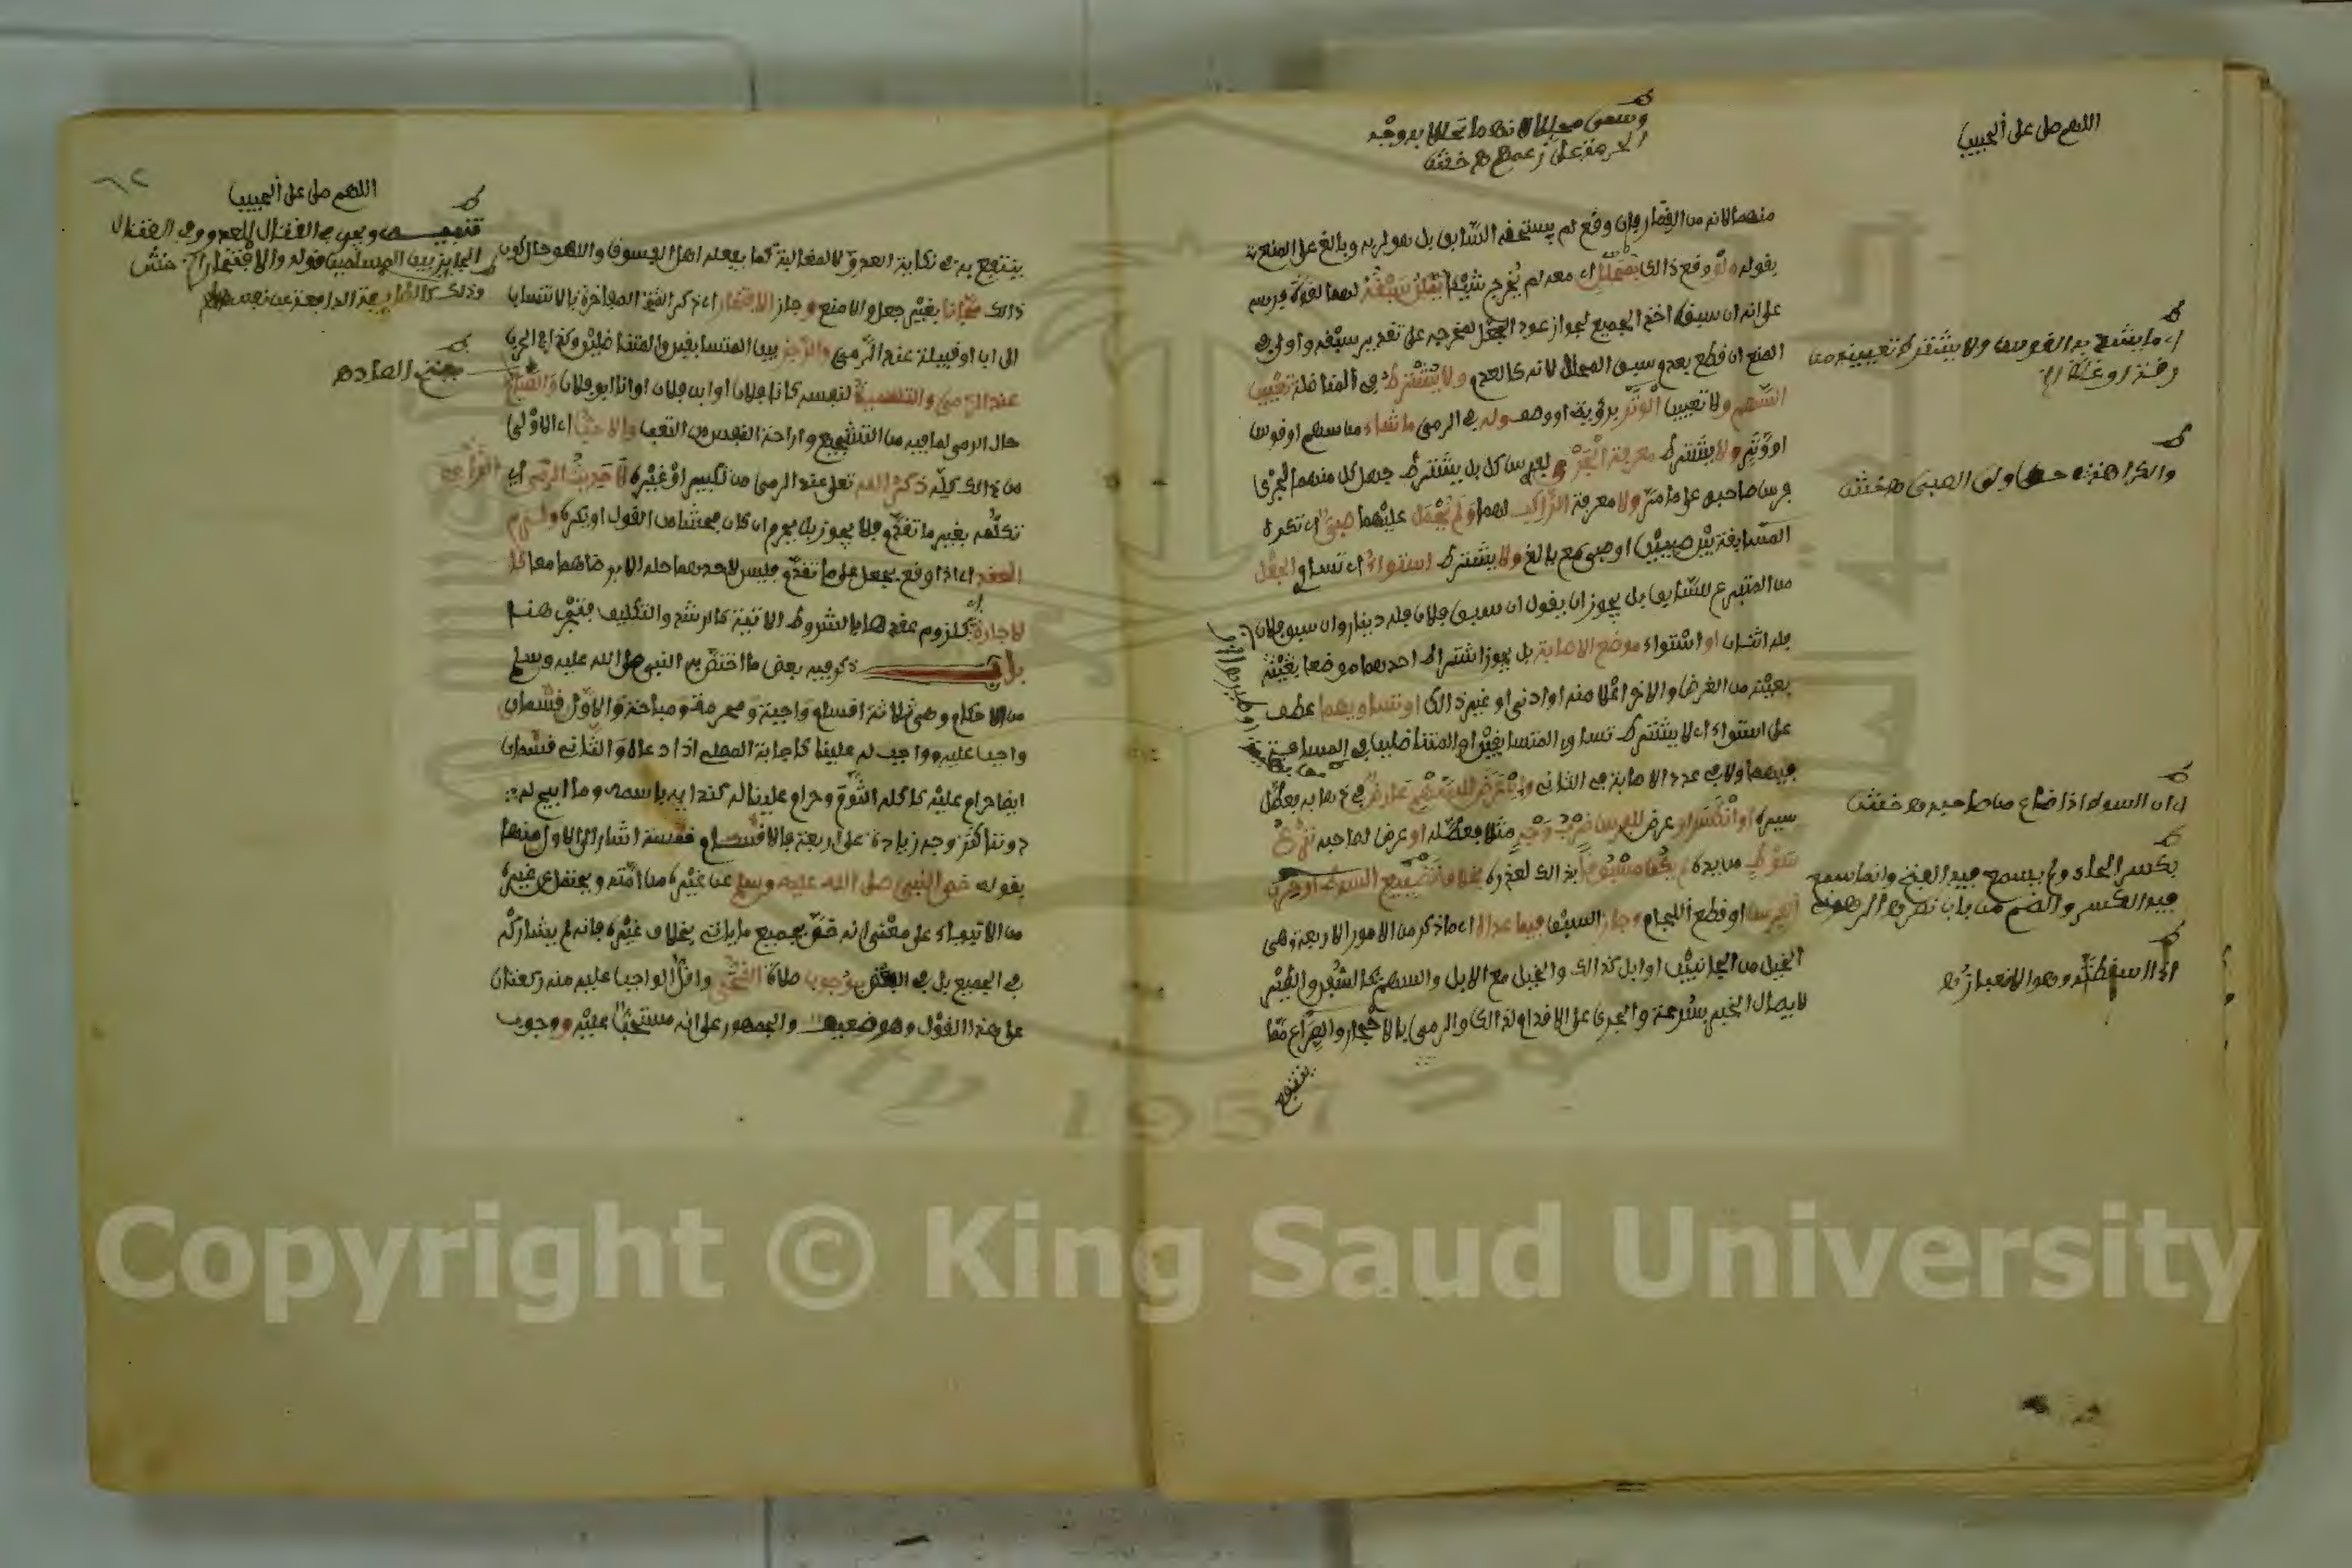 اللهم صل على الحبيب
وسمى محللا لانه ما تحللا به وجه
الحرمة على زعمهم اه خرشي
منهما لانه من القمار وان وقع لم يستحقه السابق بل هو لربه وبالغ على المنع
بقوله ولو وقع ذالك بمحلل اي معه لم يخرج شيئا يمكن سبقه لهما لقوة فرسه
على انه ان سبق اخذ الجميع لجواز عود الجعل لمخرجه على تقدير سبقه واولى في
المنع ان قطع بعدم سبق المحلل لانه كالعدم ولا يشترط في المناضلة تعيين
السهم ولا تعيين الوتر برؤية او وصف وله في الرمي ما شاء من سهم او قوس
او وتر ولا يشترط معرفة الجري لفرس كل بل يشترط جهل كل منهما الجري
فرس صاحبه على ما مر ولا معرفة الراكب لهما ولم يحمل عليهما صبي اي تكره
المسابقة بين صبيين او صبي مع بالغ ولا يشترط استواء اي تساوي الجعل
من المتبرع للسابق بل يجوز ان يقول ان سبق فلان فله دينار وان سبق فلان
فله اثنان او استواء موضع الاصابة بل يجوز اشتراط احدهما موضعا بعينه
بعينه من الغرض والاخر اعلا منه او ادنى او غير ذالك او تساويهما عطف
على استواء اي لا يشترط تساوي المتسابقين او المتناضلين في المسافة
فيهما ولا في عدد الاصابة في الثاني وان عرض للسهم عارض في ذهابه فعطل
سيره او انكسر او عرض للفرس ضرب وجه مثلا فعطله او عرض لصاحبه نزع
سوط من يده لم يكن مسبوقا بذالك لعذره بخلاف تضييع السوط او حرن
الفرس او قطع اللجام وجاز السبق فيما عداه اي ما ذكر من الامور الاربعة وهي
الخيل من الجانبين او ابل كذالك والخيل مع الابل والسهم كالسفن والطير
لايصال الخبر بسرعة والجري على الاقدام كذالك والرمي بالاحجار والصراع مما
ينتفع
اي ما يشج به القوس ولا يشترط تعيينه من
رقة او غلظ اه
والكراهة على ولي الصبي اه خرشي
اي ان السوط اذا ضاع من صاحبه اه خرشي
بكسر الحاء ولم يسمع فيه الفتح وانما سمع
فيه الكسر والضم من باب نصر
اللهم صل على الحبيب
الجايز بين المسلمين قوله والافتخار اه خرشي
بفتح الصاد اه
ينتفع به في نكاية العدو لا للمغالبة كما يفعله اهل الفسوق واللهو حال كون
ذالك مجانا بغير جعل والا منع وجاز الافتخار اي ذكر المفاخرة بالانتساب
الى اب او قبيلة عند الرمي والرجز بين المتسابقين والمتناضلين وكذا في الحرب
عند الرمي والتسمية لنفسه كانا فلان او ابن فلان او انا ابو فلان والصياح
حال الرمي لما فيه من التشجيع واراحة النفس من التعب والاحب اي الاولى
من ذالك كله ذكر الله تعلى عند الرمي من تكبير او غيره لا حديث الرمي اي
تكلمه بغير ما تقدم فلا يجوز بل يحرم ان كان فحشا من القول او يكره ولزم
العقد اي اذا وقع بجعل على ما تقدم فليس لاحدهما حله الا برضاهما معا كا
لاجارة اي كلزوم عقدها بالشروط الاتية كالرشد والتكليف
باب ذكر فيه بعض ما اختص به النبي صلى الله عليه وسلم
من الاحكام وهي ثلاثة اقسام واجبة ومحرمة ومباحة والاول قسمان
واجب عليه وواجب له علينا كاجابة المصلي اذا دعاه والثاني قسمان
ايضا حرام عليه كاكله الثوم وحرام علينا له كندايه باسمه وما ابيح له
دوننا كتزوجه زيادة على اربعة فالاقسام خمسة اشار الى الاول منها
بقوله خص النبي صلى الله عليه وسلم عن غيره من امته ويحتمل عن غيره
من الانبياء على معنى انه خص بجميع ما يات بخلاف غيره فانه لم يشاركه
في الجميع بل في البعض بوجوب صلاة الضحى واقل الواجب عليه منه ركعتان
على هذا القول وهو ضعيف والجمهور على انه مستحب عليه ووجوب